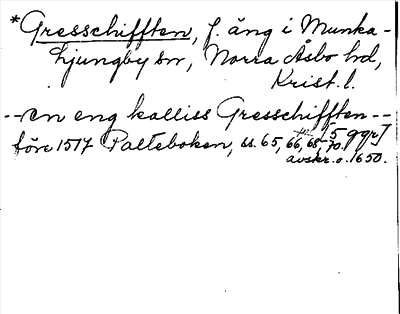 *Gresschifften, f. äng i Munka-
Ljungby sn, Norra Åsbo hd,
Krist. l.
--en eng kalliss Gresschifften--
före 1517 Palteboken, ss. 65, 66, 68-70. 5 ggr]
avskr. o. 1650.